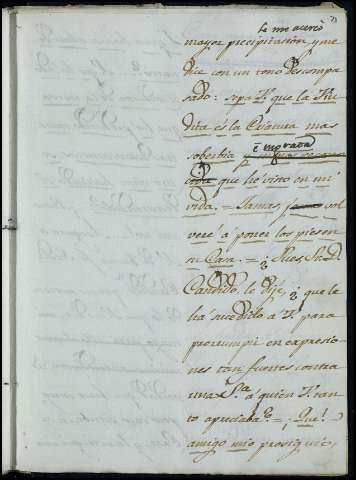 se me acercó
mayor precipitacion, y me
dice con un tono descompa
sado: sepa V. que la Viu
dita es la Criatura mas
é ingrata
soberbia
que hé visto en mi
vida. = Jamas, vol
veré á poner los pies en
su Casa. = ¿ Pues, S.r D.n
Candido, le dije, que le
há sucedido á V. para
prorrumpir en expresio-
nes tan fuertes contra
una S.ra á quien V. tan
to apreciaba? = ¡ Que!
amigo mio prosiguió,